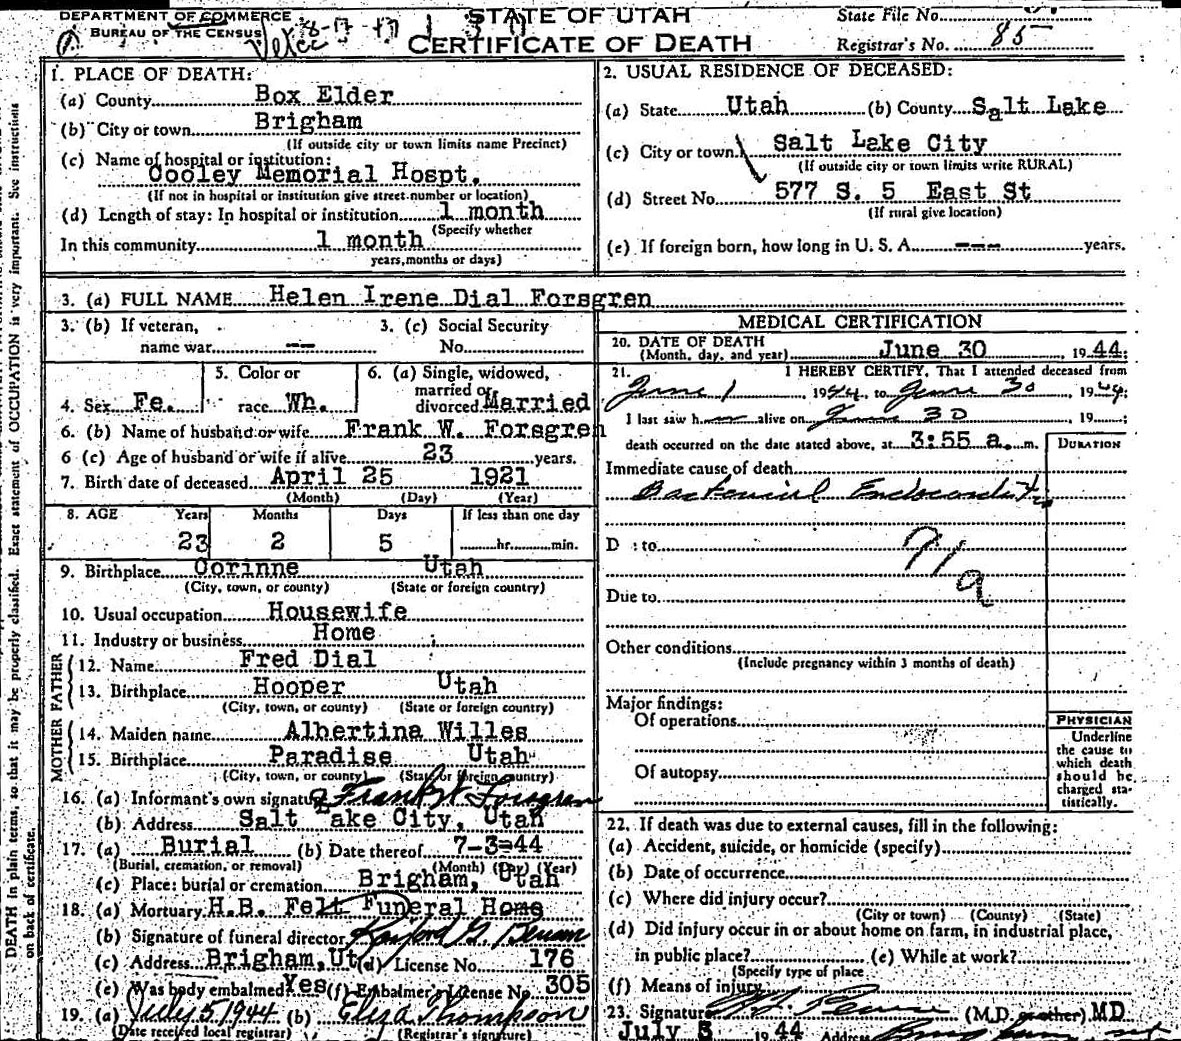 DEPARTMENT OF COMMERCE
BUREAU OF THE CENSUS
STATE OF UTAH
CERTIFICATE OF DEATH
State File No.
Registrar's No. 85
1. PLACE OF DEATH:
(a) County Box Elder
(b) City or town Brigham
(If outside city or town limits name Precinct)
(c) Name of hospital or institution:
Cooley Memorial Hospt.
(If not in hospital or institution give street number or location)
(d) Length of stay: In hospital or institution 1 month
(Specify whether
In this community 1 month
years, months or days)
2. USUAL RESIDENCE OF DECEASED:
(a) State Utah (b) County Salt Lake
(c) City or town Salt Lake City
(If outside city or town limits write RURAL)
(d) Street No. 577 S. 5 East St
(If rural give location)
(e) If foreign born, how long in U. S. A. --- years.
3. (a) FULL NAME Helen Irene Dial Forsgren
3. (b) If veteran,
name war --
3. (c) Social Security
No.
4. Sex Fe.
5. Color or
race Wh.
6. (a) Single, widowed,
married or
divorced Married
6. (b) Name of husband or wife Frank W. Forsgren
6 (c) Age of husband or wife if alive 23 years.
7. Birth date of deceased April 25 1921
(Month) (Day) (Year)
8. AGE Years Months Days If less than one day
23 2 5 hr. min.
9. Birthplace Corinne Utah
(City, town, or county) (State or foreign country)
10. Usual occupation Housewife
11. Industry or business Home
FATHER
12. Name Fred Dial
13. Birthplace Hooper Utah
(City, town, or county) (State or foreign country)
MOTHER
14. Maiden name Albertina Willes
15. Birthplace Paradise Utah
(City, town, or county) (State or foreign country)
16. (a) Informant's own signature Frank W Forsgren
(b) Address Salt Lake City, Utah
17. (a) Burial (b) Date thereof 7-3-44
(Burial, cremation, or removal) (Month) (Day) (Year)
(c) Place: burial or cremation Brigham, Utah
18. (a) Mortuary H.B. Felt Funeral Home
(b) Signature of funeral director
(c) Address Brigham, Ut (d) License No. 176
(e) Was body embalmed Yes (f) Embalmer's License No. 305
19. (a) July 5, 1944 (b) Eliza Thompson
(Date received local registrar) (Registrar's signature)
MEDICAL CERTIFICATION
20. DATE OF DEATH
(Month, day, and year) June 30, 1944;
21. I HEREBY CERTIFY, That I attended deceased from
June 1, 1944, to June 30 1944;
I last saw h alive on June 30 19 ;
death occurred on the date stated above, at 3:55 a. m.
DURATION
Immediate cause of death
Bacterial Endocarditis
D to
71a
9
Due to
Other conditions
(Include pregnancy within 3 months of death)
Major findings:
Of operations
Of autopsy
PHYSICIAN
Underline
the cause to
which death
should be
charged sta-
tistically.
22. If death was due to external causes, fill in the following:
(a) Accident, suicide, or homicide (specify)
(b) Date of occurrence
(c) Where did injury occur?
(City or town) (County) (State)
(d) Did injury occur in or about home on farm, in industrial place,
in public place? (e) While at work?
(Specify type of place
(f) Means of injury
23. Signature (M.D. or other) MD
July 3 1944 Address
DEATH in plain terms, so that it may be properly classified. Exact statement of OCCUPATION is very important. See instructions
on back of certificate.